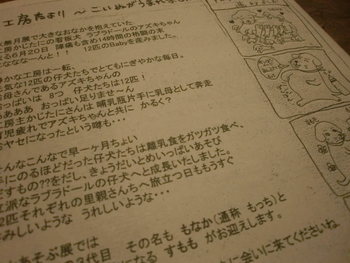 工房だより ～こいぬがうまれま
展で大きなおなかを抱えていた
かじたにの看板犬 ラブラドールのアズキちゃん
6月20日 陣痛も含め14時間の格闘の末
なななな～んと！！ 12匹のBabyを産みました。
かな工房は一転、
元気な！12匹の仔犬たちでとてもにぎやかな毎日。
母さんであるアズキちゃんの
おっぱいは 8つ 仔犬たちは12匹！
ああああ おっぱい足りませ～ん
房主かじたにさんは 哺乳瓶片手に乳母として奔走
育児疲れでアズキちゃんと共に かるく？
ヤセになったという噂も・・・
そんなこんなで早一ヶ月ちょい
のるほどだった仔犬たちは離乳食をガツガツ食べ、
だすもの??をだし、きょうだいとめいっぱいあそび
派なラブラドールの仔犬へと成長いたしました。
2匹それぞれの里親さんへ旅立つ日ももうすぐ
みしいような うれしいような・・・
あそぶ展では
代目 その名も もなか(通称 もっち)と
なる すもも がお迎えします。
に会いに来てくださいね